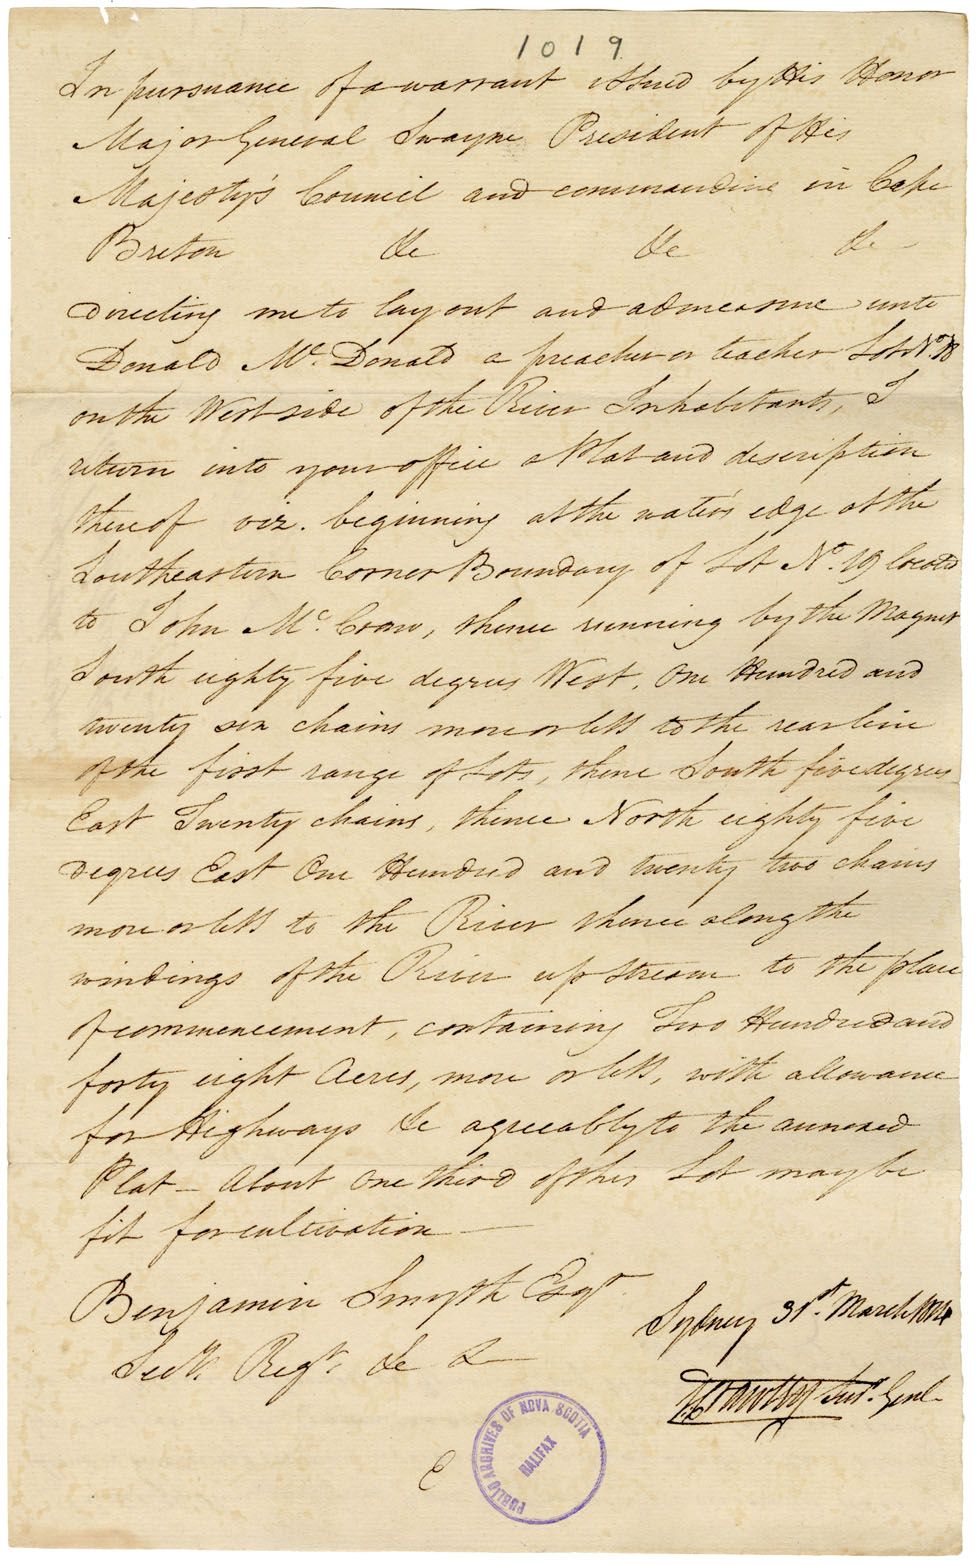 1019
In pursuance of a warrant issued by His Honor
Major General Swayne President of His
Majesty's Council and commanding in Cape
Breton &c &c &c
directing me to lay out and admeasure unto
Donald Mc. Donald a preacher or teacher Lot No.
on the West side of the River Inhabitants, I
return into your office a Plat and description
thereof viz. beginning at the water's edge at the
Southeastern Corner Boundary of Lot No. 19 located
to John Mc. , thence running by the Magnet
South eighty five degrees West, One Hundred and
twenty six chains more or less to the rear line
of the first range of Lots, thence South five degrees
East Twenty chains, thence North eighty five
degrees East One Hundred and twenty two chains
more or less to the River thence along the
windings of the River up stream to the place
of commencement, containing Two Hundred and
forty eight Acres, more or less, with allowance
for Highways &c agreeably to the annexed
Plat – About One third of this Lot may be
fit for cultivation –
Benjamin Smyth Esqr.
Secy. Regr. &c &
Sydney 31st. March
Surr. Genl.
E
PUBLIC ARCHIVES OF NOVA SCOTIA
HALIFAX